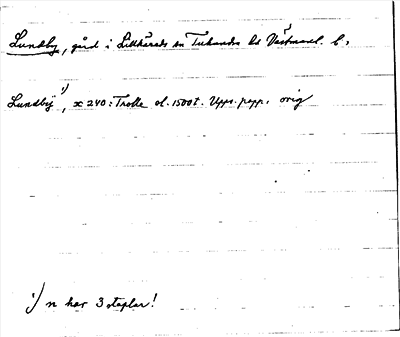 Lundby, gård i Litthärads sn Tuhundra hd Västmanl. l.
Lundbÿ ¹), x 240: Trolle ol. 1500t. Upps. papp. orig
¹) n har 3 staplar!